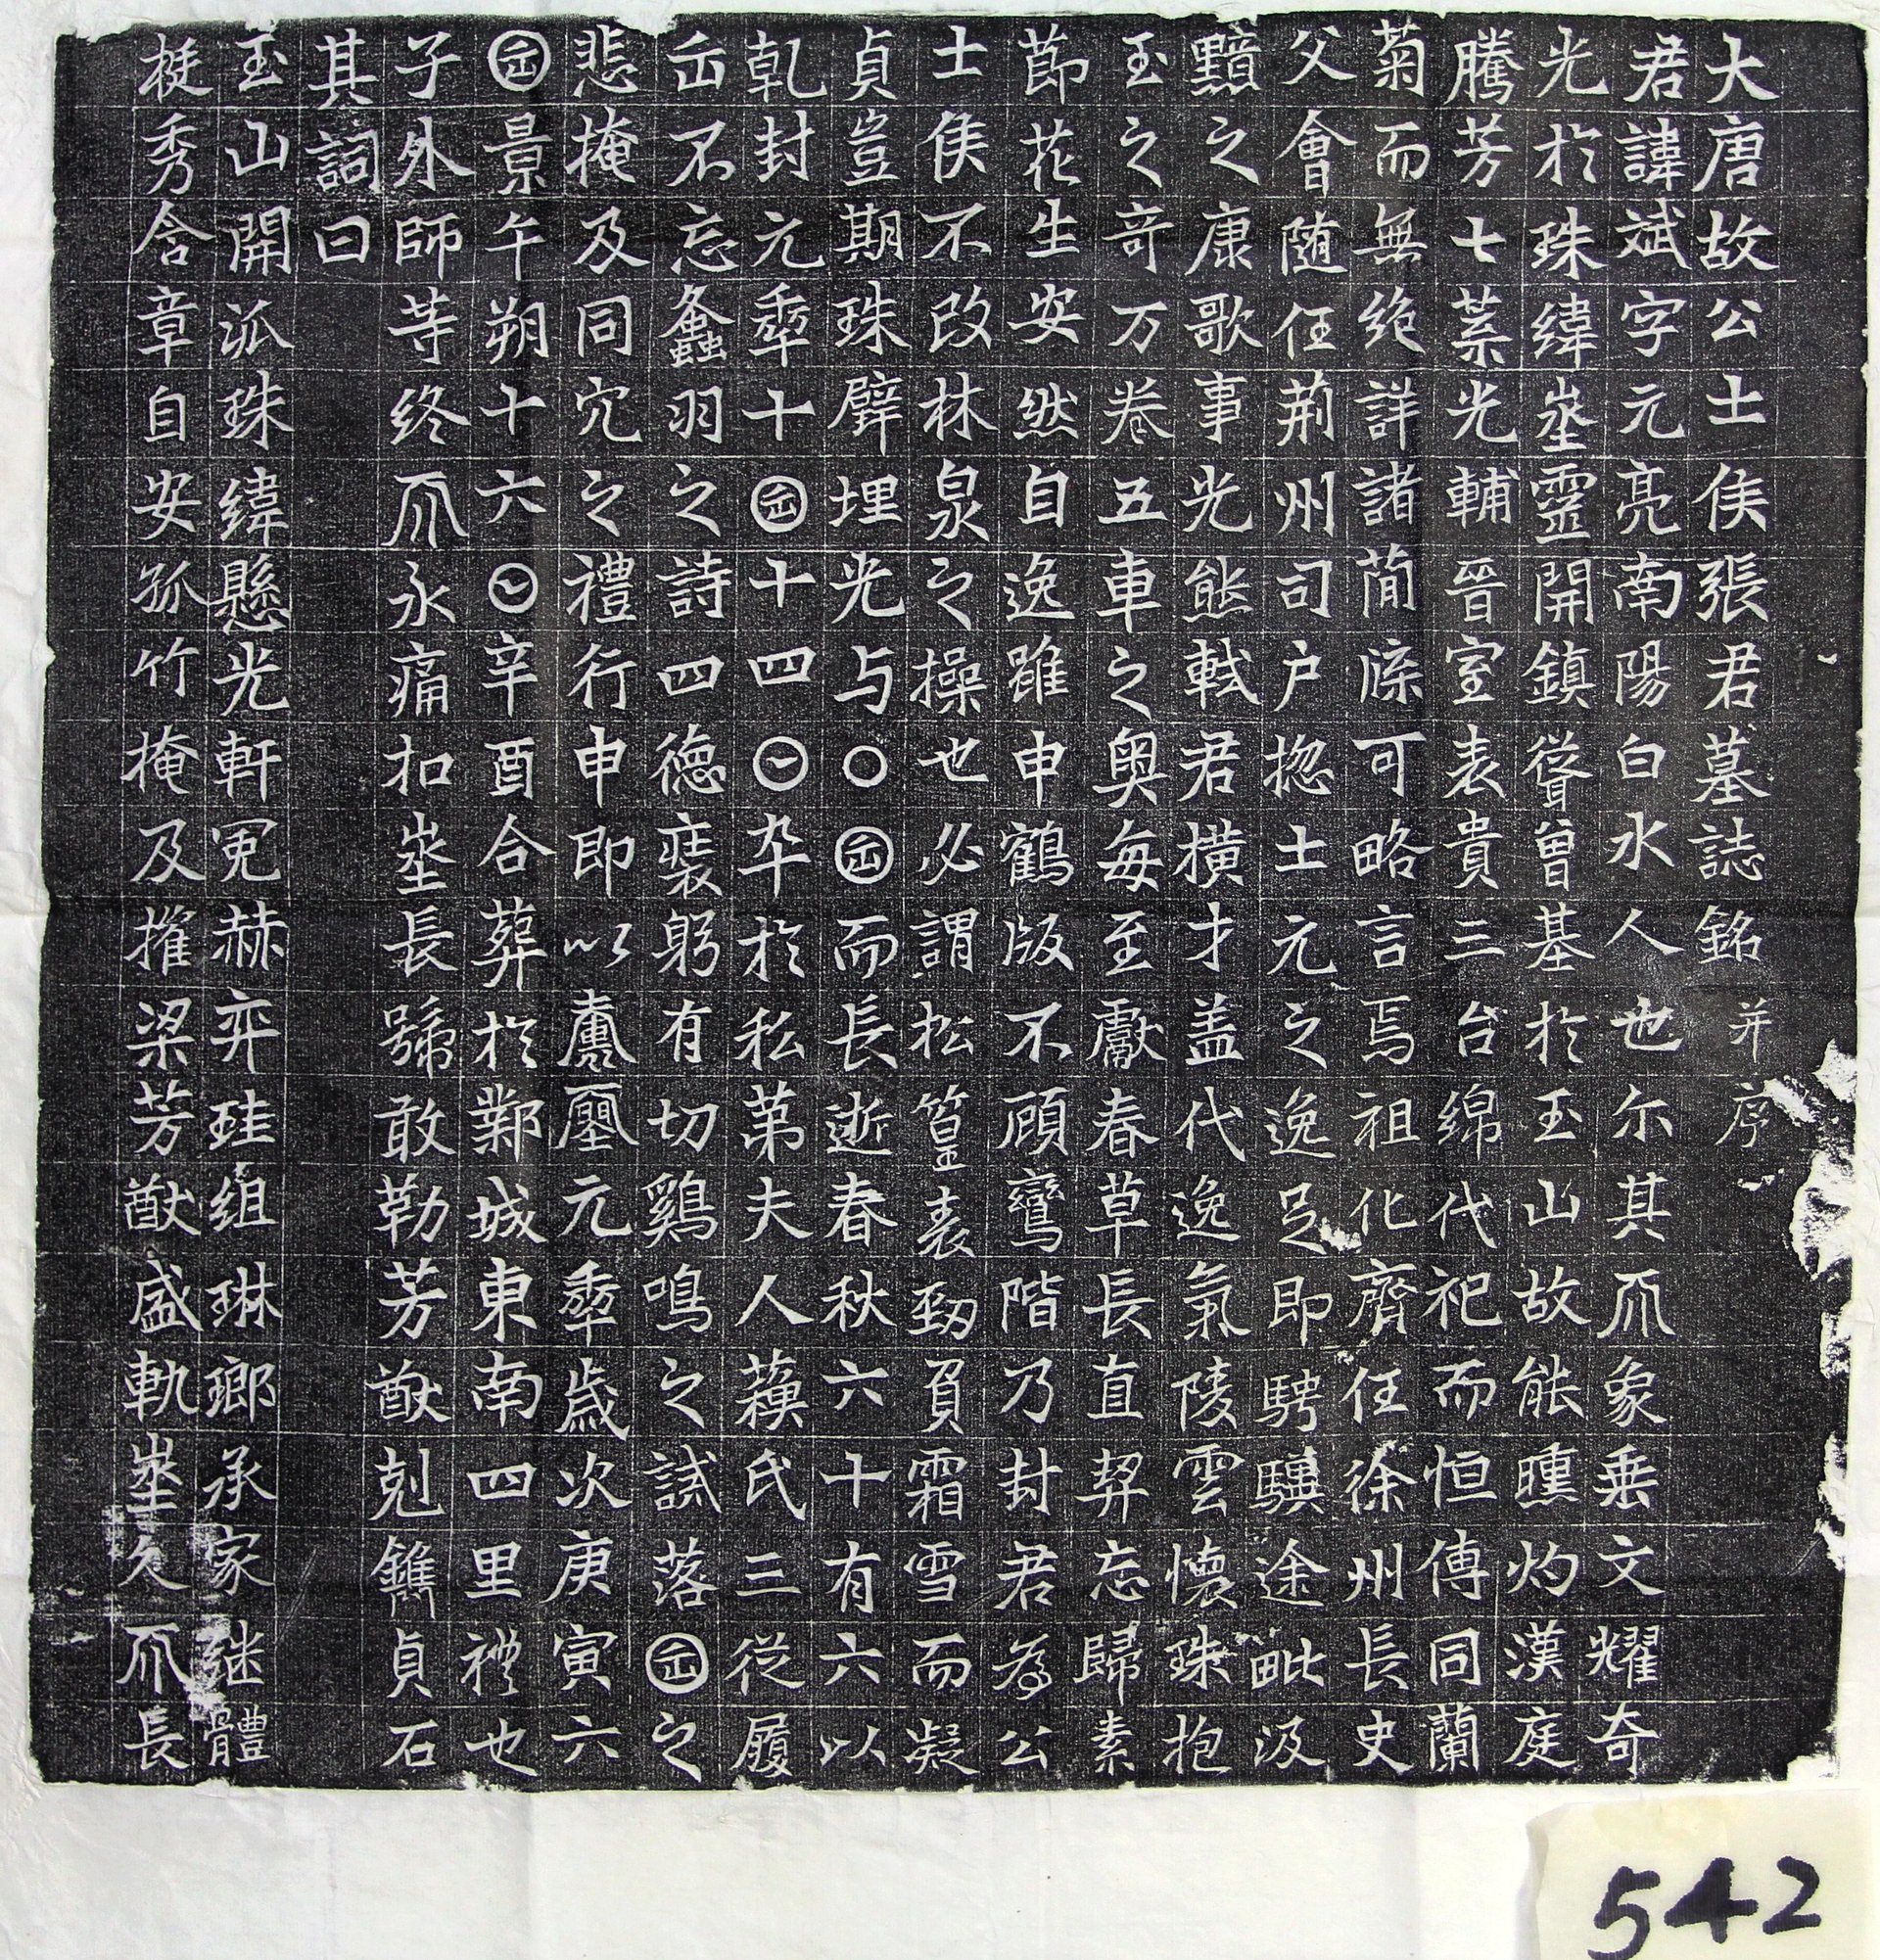 大唐故公士侯張君墓誌銘并序
君諱斌字元亮南陽白水人也尒其𠀑象垂文耀奇
光於珠緯埊靈開鎮聳曾基於玉山故能曛灼漢庭
騰芳七葉光輔晉室表貴三台綿代祀而恒傳同蘭
菊而無絶詳諸簡牒可略言焉祖化齊任徐州長史
父會随任荊州司户揔士元之逸足即騁驥途毗汲
黯之康歌事光熊軾君橫才盖代逸氣陵雲懷珠抱
玉之奇万卷五車之奧每至獻春草長直契忘歸素
節花生安然自逸雖申鶴版不顧鸞階乃封君為公
士侯不改林泉之操也必謂松篁表勁負霜雪而凝
貞豈期珠璧埋光与〇囝而長逝春秋六十有六以
乾封元𠡦十囝十四𡆠卒於私第夫人蘇氏三從履
𠙺不忘螽羽之詩四德裴躬有切鷄鳴之試落囝之
悲掩及同穴之禮行申即以𡕀𡔈元𠡦歲次庚寅六
囝景午朔十六𡆠辛酉合葬於鄴城東南四里禮也
子外師等終𠀑永痛扣埊長號敢勒芳猷剋鐫貞石
其詞曰
玉山開派珠緯懸光軒冕赫弈珪組琳瑯承家继體
挺秀含章自安孤竹掩及摧梁芳猷盛軌埊久𠀑長
542